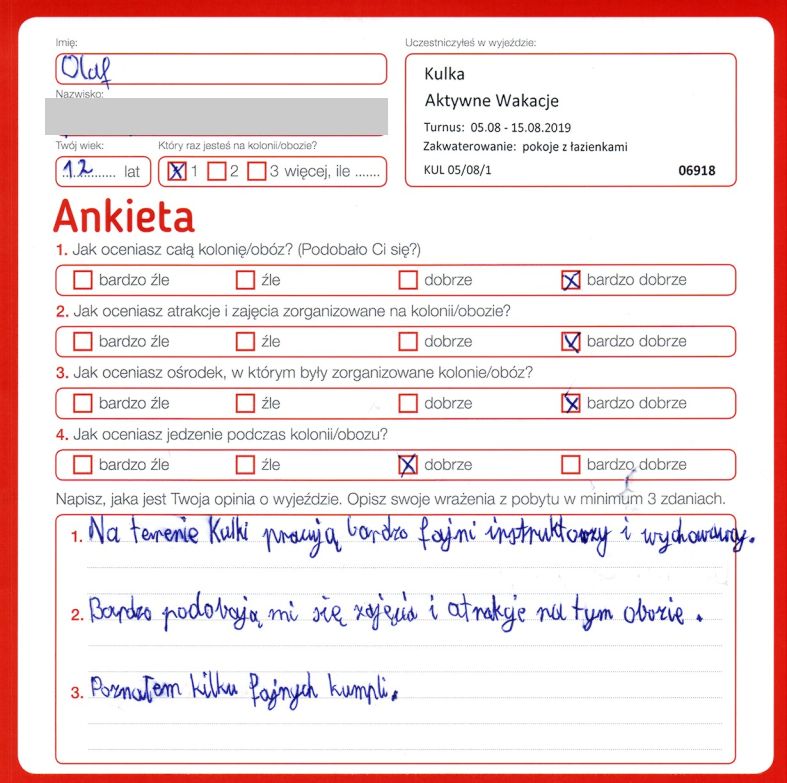 Imię:
Olaf
Nazwisko:
Twój wiek:
12 lat
Który raz jesteś na kolonii/obozie?
1 2 3 więcej, ile .......
Uczestniczyłeś w wyjeździe:
Kulka
Aktywne Wakacje
Turnus: 05.08 - 15.08.2019
Zakwaterowanie: pokoje z łazienkami
KUL 05/08/1 06918
Ankieta
1. Jak oceniasz całą kolonię/obóz? (Podobało Ci się?)
bardzo źle źle dobrze bardzo dobrze
2. Jak oceniasz atrakcje i zajęcia zorganizowane na kolonii/obozie?
bardzo źle źle dobrze bardzo dobrze
3. Jak oceniasz ośrodek, w którym były zorganizowane kolonie/obóz?
bardzo źle źle dobrze bardzo dobrze
4. Jak oceniasz jedzenie podczas kolonii/obozu?
bardzo źle źle dobrze bardzo dobrze
Napisz, jaka jest Twoja opinia o wyjeździe. Opisz swoje wrażenia z pobytu w minimum 3 zdaniach.
1. Na terenie Kulki pracują bardzo fajni instruktorzy i wychowawcy.
2. Bardzo podobają mi się zajęcia i atrakcje na tym obozie.
3. Poznałem kilku fajnych kumpli.